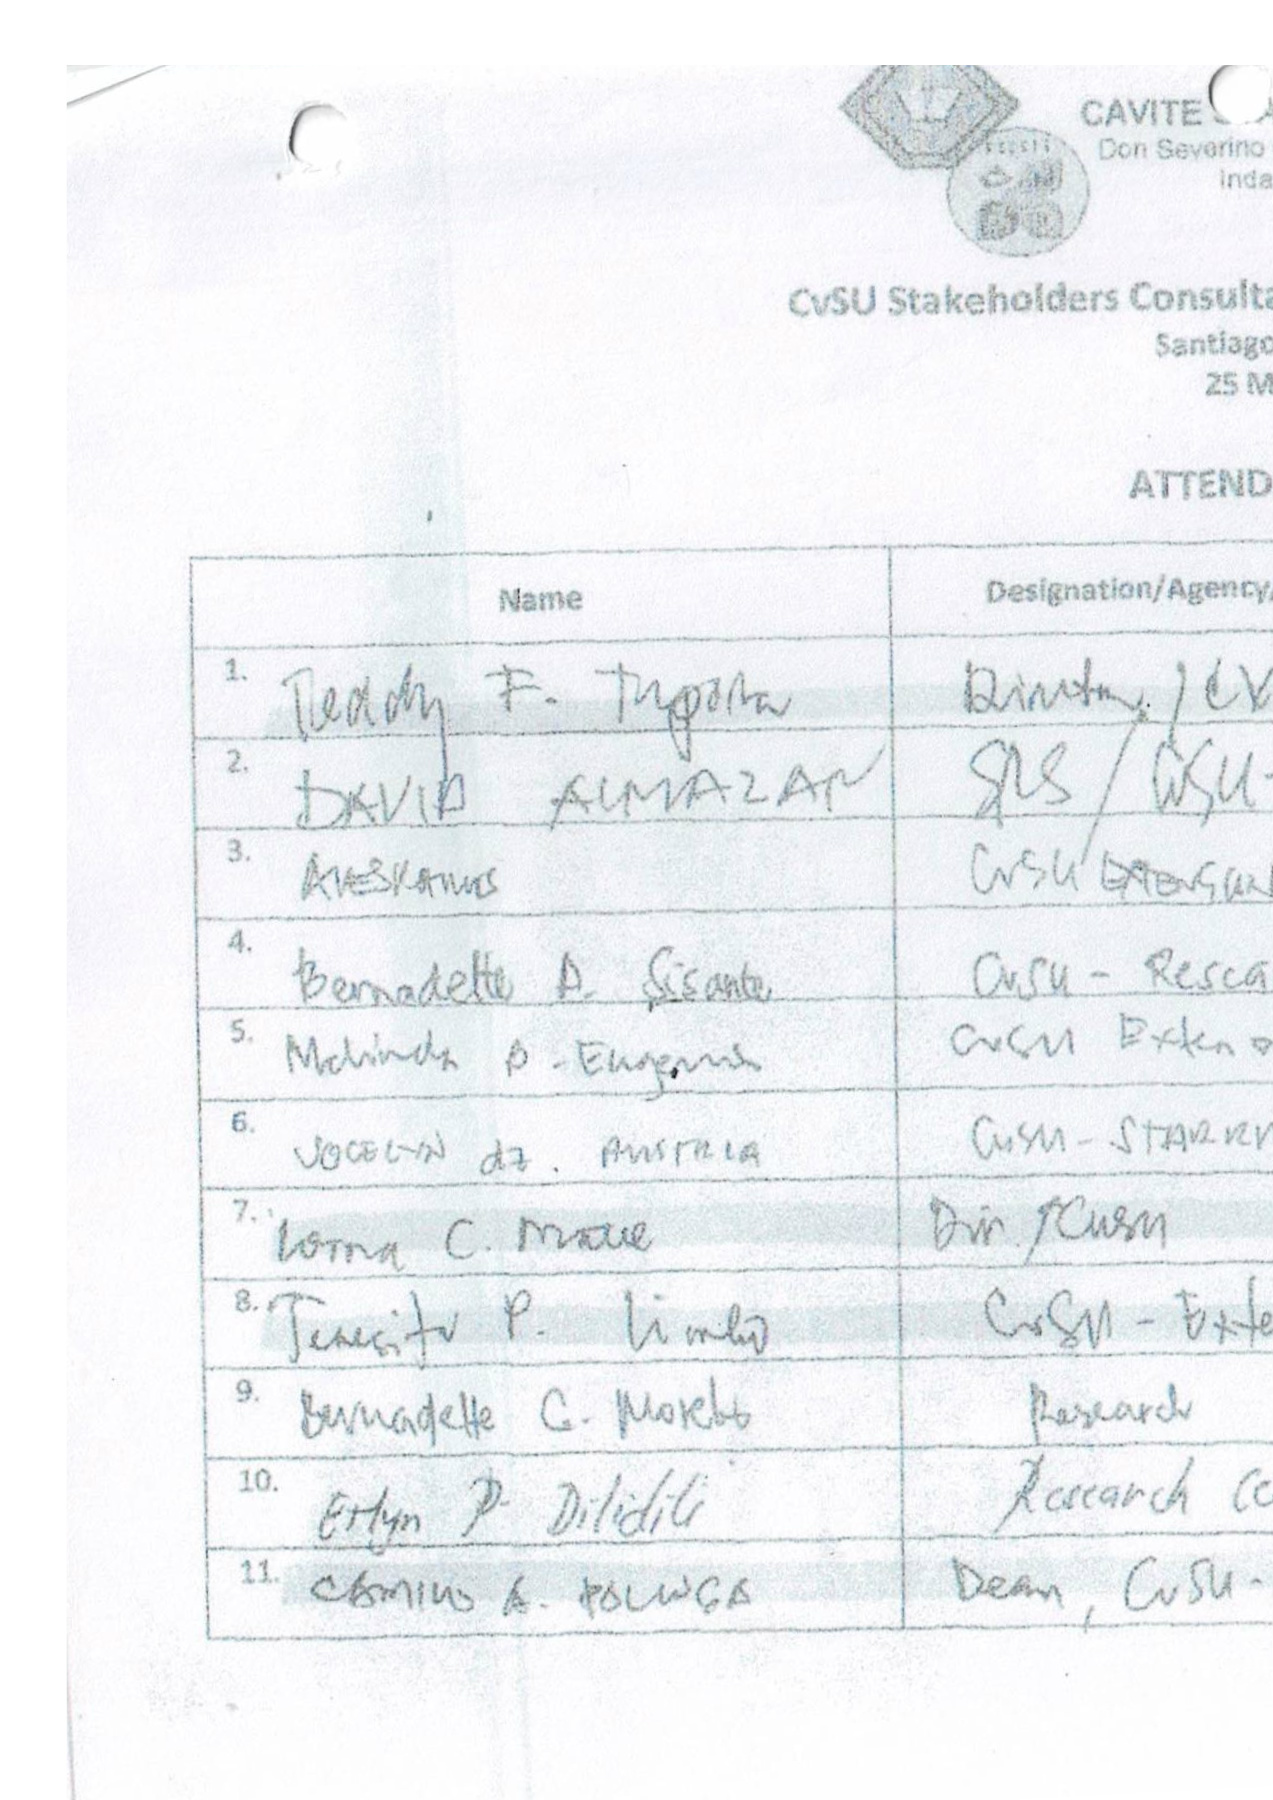 CAVITE
Don Severino
Inda
CvSU Stakeholders Consulta
Santiago
25 M
ATTEND
Name Designation/Agency/
1. Teddy F. / CV
2. DAVID ALMAZAN SRS / CvSU-
3. CvSU EXTENSION
4. Bernadette A. Sisante CvSU - Resea
5. CvSU Exten
6. JOCELYN dz. AUSTRIA CvSU - STARRD
7. Lorna C. Dir. / CvSU
8. P. Limbo CvSU - Exte
9. Bernadette C. Research
10. Erlyn P. Dilidili Research Ce
11. CAMILO A. POLINGA Dean, CvSU -